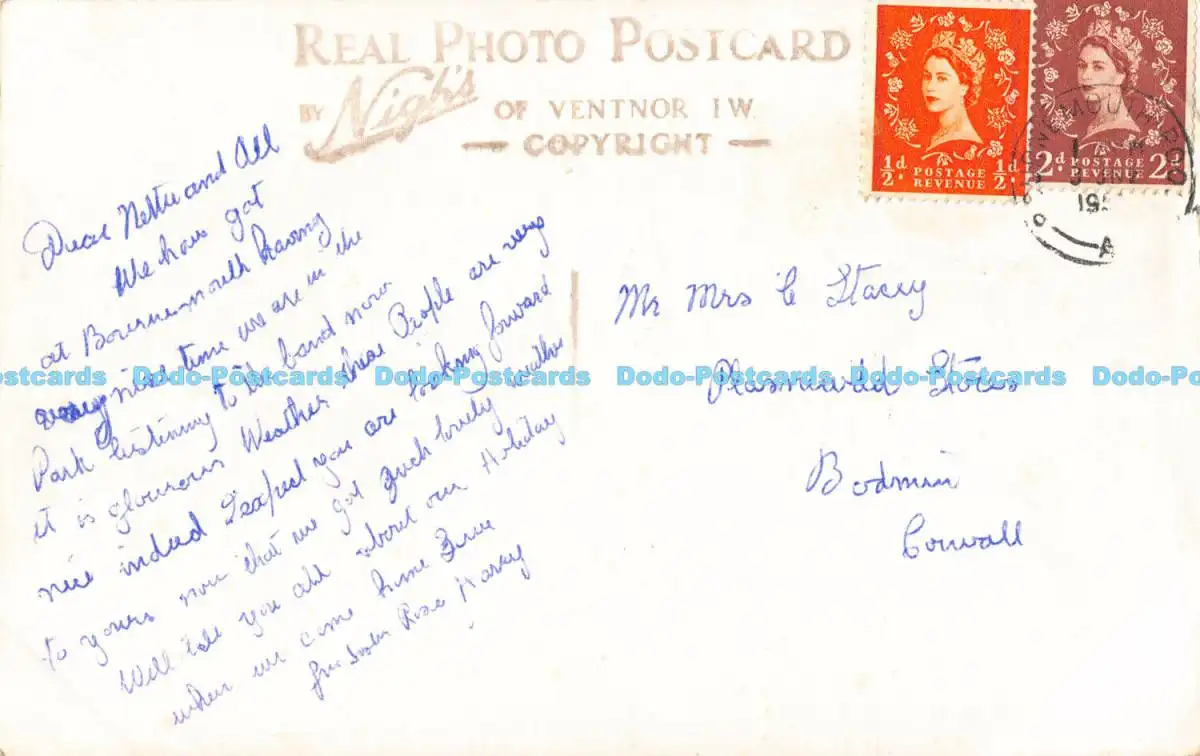 REAL PHOTO POSTCARD
BY Nigh's OF VENTNOR I W
COPYRIGHT
½d ½d
POSTAGE REVENUE
2d 2d
POSTAGE REVENUE
Dear Nettie and All
We have got
at Bournemouth having
very nice time we are in the
Park listining to the band now
it is glourous Weather these People are very
nice indeed I expect you are looking forward
to yours now that we got such lovely weather
Will tell you all about our Holiday
when we come home
from Rose Harry
Mr Mrs C Stacey
Stores
Bodmin
Conwall
ostcards Dodo-Postcards Dodo-Postcards Dodo-Postcards Dodo-Postcards Dodo-Po